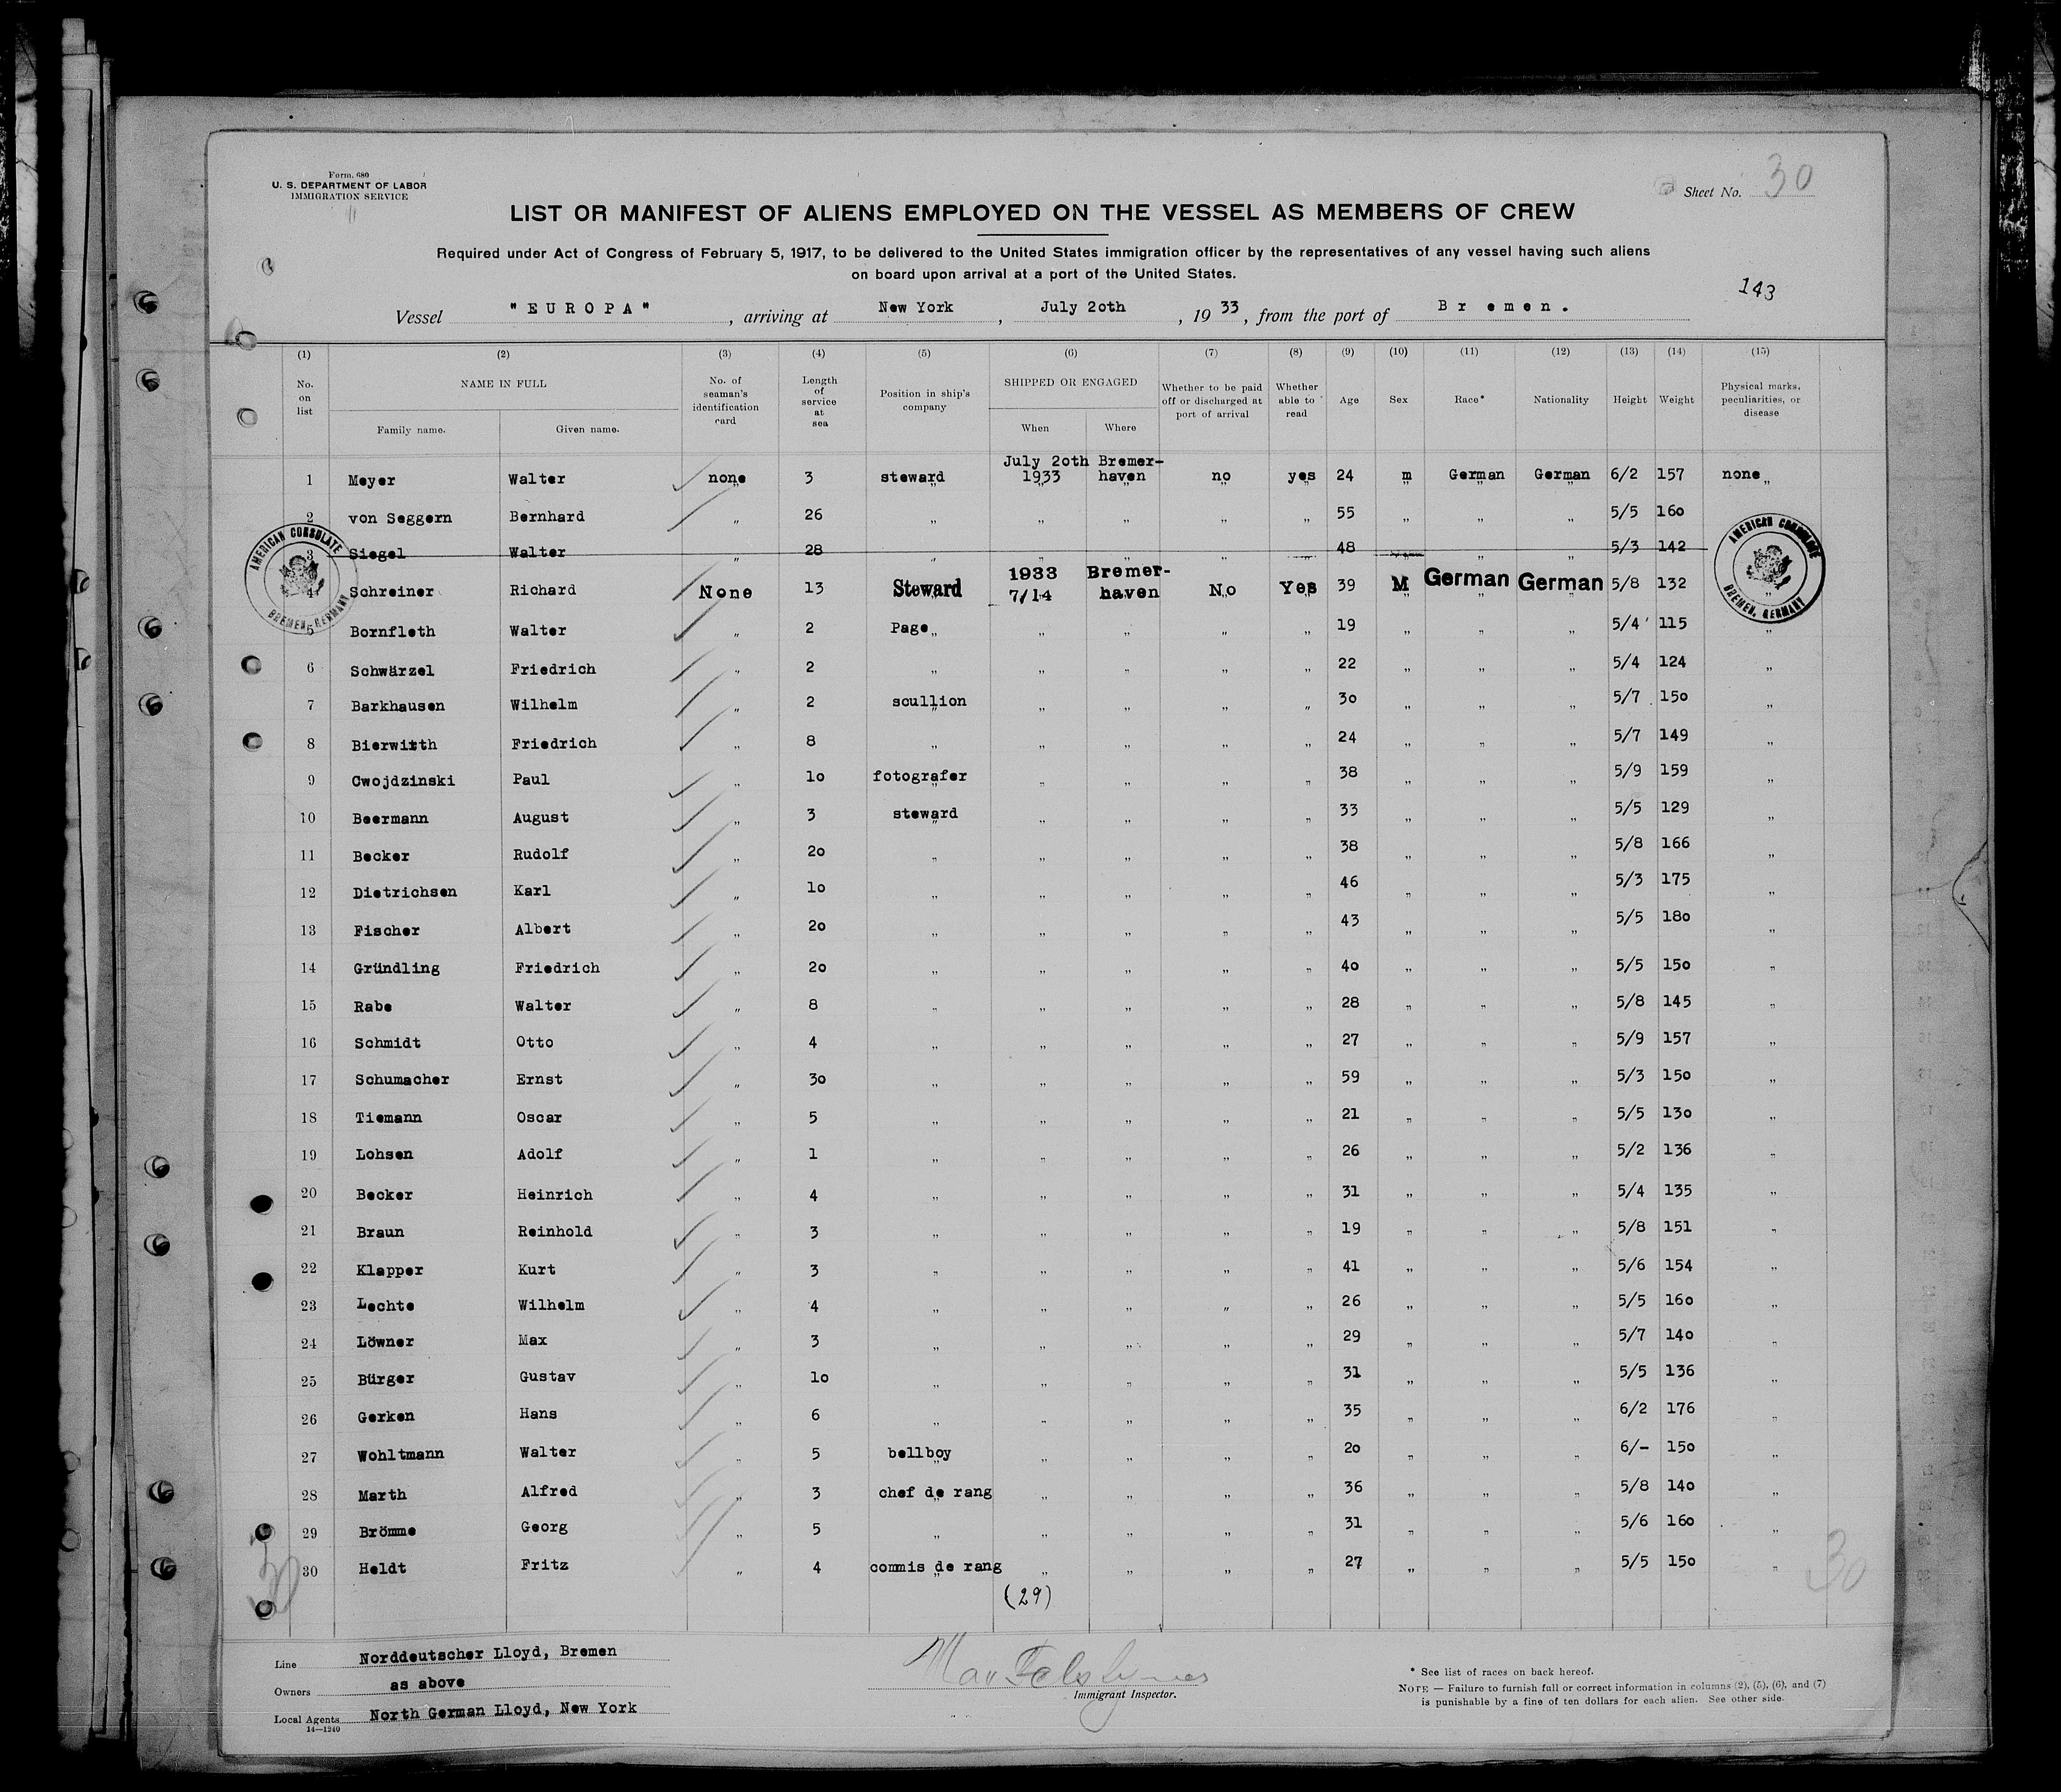 Form. 680
U. S. DEPARTMENT OF LABOR
IMMIGRATION SERVICE
Sheet No. 30
LIST OR MANIFEST OF ALIENS EMPLOYED ON THE VESSEL AS MEMBERS OF CREW
Required under Act of Congress of February 5, 1917, to be delivered to the United States immigration officer by the representatives of any vessel having such aliens
on board upon arrival at a port of the United States.
143
Vessel "EUROPA" , arriving at New York , July 2oth , 19 33, from the port of Bremen.
(1) (2) (3) (4) (5) (6) (7) (8) (9) (10) (11) (12) (13) (14) (15)
No. on list NAME IN FULL Family name. Given name. No. of seaman's identification card Length of service at sea Position in ship's company SHIPPED OR ENGAGED When Where Whether to be paid off or discharged at port of arrival Whether able to read Age Sex Race* Nationality Height Weight Physical marks, peculiarities, or disease
July 2oth Bremer-
1 Meyer Walter none 3 steward 1933 haven no yes 24 m German German 6/2 157 none „
2 von Seggern Bernhard „ 26 „ „ „ „ „ 55 „ „ „ 5/5 16o
3 Siegel Walter „ 28 „ „ „ „ 48 „ „ 5/3 142
1933 Bremer-
4 Schreiner Richard None 13 Steward 7/14 haven No Yes 39 M German German 5/8 132 „
5 Bornfleth Walter „ 2 Page „ „ „ „ „ 19 „ „ „ 5/4 115 „
6 Schwärzel Friedrich „ 2 „ „ „ „ „ 22 „ „ „ 5/4 124 „
7 Barkhausen Wilhelm „ 2 scullion „ „ „ „ 3o „ „ „ 5/7 15o „
8 Bierwirth Friedrich „ 8 „ „ „ „ „ 24 „ „ „ 5/7 149 „
9 Cwojdzinski Paul „ 1o fotografer „ „ „ „ 38 „ „ „ 5/9 159 „
10 Beermann August „ 3 steward „ „ „ „ 33 „ „ „ 5/5 129 „
11 Becker Rudolf „ 2o „ „ „ „ „ 38 „ „ „ 5/8 166 „
12 Dietrichsen Karl „ 1o „ „ „ „ „ 46 „ „ „ 5/3 175 „
13 Fischer Albert „ 2o „ „ „ „ „ 43 „ „ „ 5/5 18o „
14 Gründling Friedrich „ 2o „ „ „ „ „ 4o „ „ „ 5/5 15o „
15 Rabe Walter „ 8 „ „ „ „ „ 28 „ „ „ 5/8 145 „
16 Schmidt Otto „ 4 „ „ „ „ „ 27 „ „ „ 5/9 157 „
17 Schumacher Ernst „ 3o „ „ „ „ „ 59 „ „ „ 5/3 15o „
18 Tiemann Oscar „ 5 „ „ „ „ „ 21 „ „ „ 5/5 13o „
19 Lohsen Adolf „ 1 „ „ „ „ „ 26 „ „ „ 5/2 136 „
20 Becker Heinrich „ 4 „ „ „ „ „ 31 „ „ „ 5/4 135 „
21 Braun Reinhold „ 3 „ „ „ „ „ 19 „ „ „ 5/8 151 „
22 Klapper Kurt „ 3 „ „ „ „ „ 41 „ „ „ 5/6 154 „
23 Lechte Wilhelm „ 4 „ „ „ „ „ 26 „ „ „ 5/5 16o „
24 Löwner Max „ 3 „ „ „ „ „ 29 „ „ „ 5/7 14o „
25 Bürger Gustav „ 1o „ „ „ „ „ 31 „ „ „ 5/5 136 „
26 Gerken Hans „ 6 „ „ „ „ „ 35 „ „ „ 6/2 176 „
27 Wohltmann Walter „ 5 bellboy „ „ „ „ 2o „ „ „ 6/- 15o „
28 Marth Alfred „ 3 chef de rang „ „ „ „ 36 „ „ „ 5/8 14o „
29 Brömme Georg „ 5 „ „ „ „ „ 31 „ „ „ 5/6 16o „
30 Heldt Fritz „ 4 commis de rang „ „ „ „ 27 „ „ „ 5/5 15o „
(29)
30
30
AMERICAN CONSULATE
BREMEN, GERMANY
AMERICAN CONSULATE
BREMEN, GERMANY
Line Norddeutscher Lloyd, Bremen
Owners as above
Local Agents North German Lloyd, New York
14—1240
Immigrant Inspector.
* See list of races on back hereof.
NOTE — Failure to furnish full or correct information in columns (2), (5), (6), and (7)
is punishable by a fine of ten dollars for each alien. See other side.